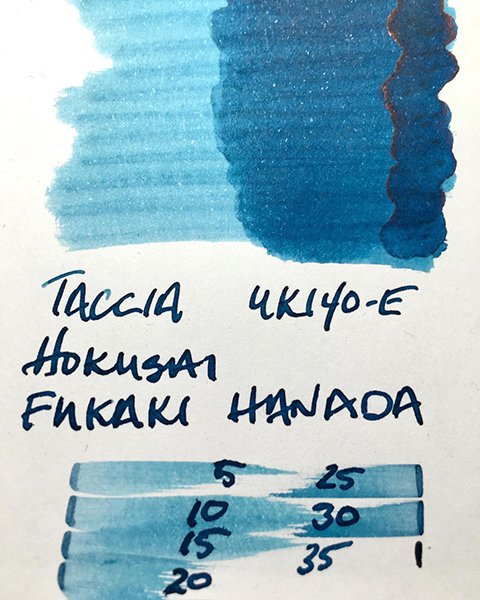 TACCIA UKIYO-E
HOKUSAI
FUKAKI HANADA
5 25
10 30
15 35 1
20